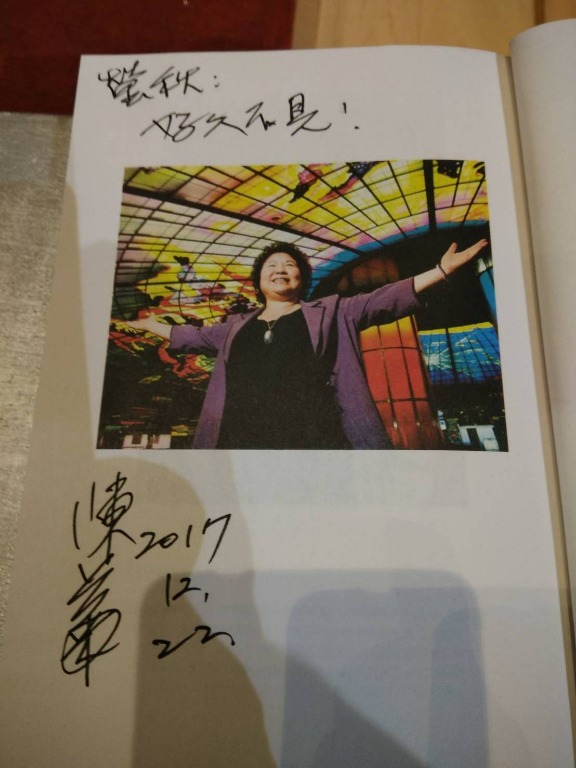 秋：
好久不見！
陳 2017
菊 12.
22.